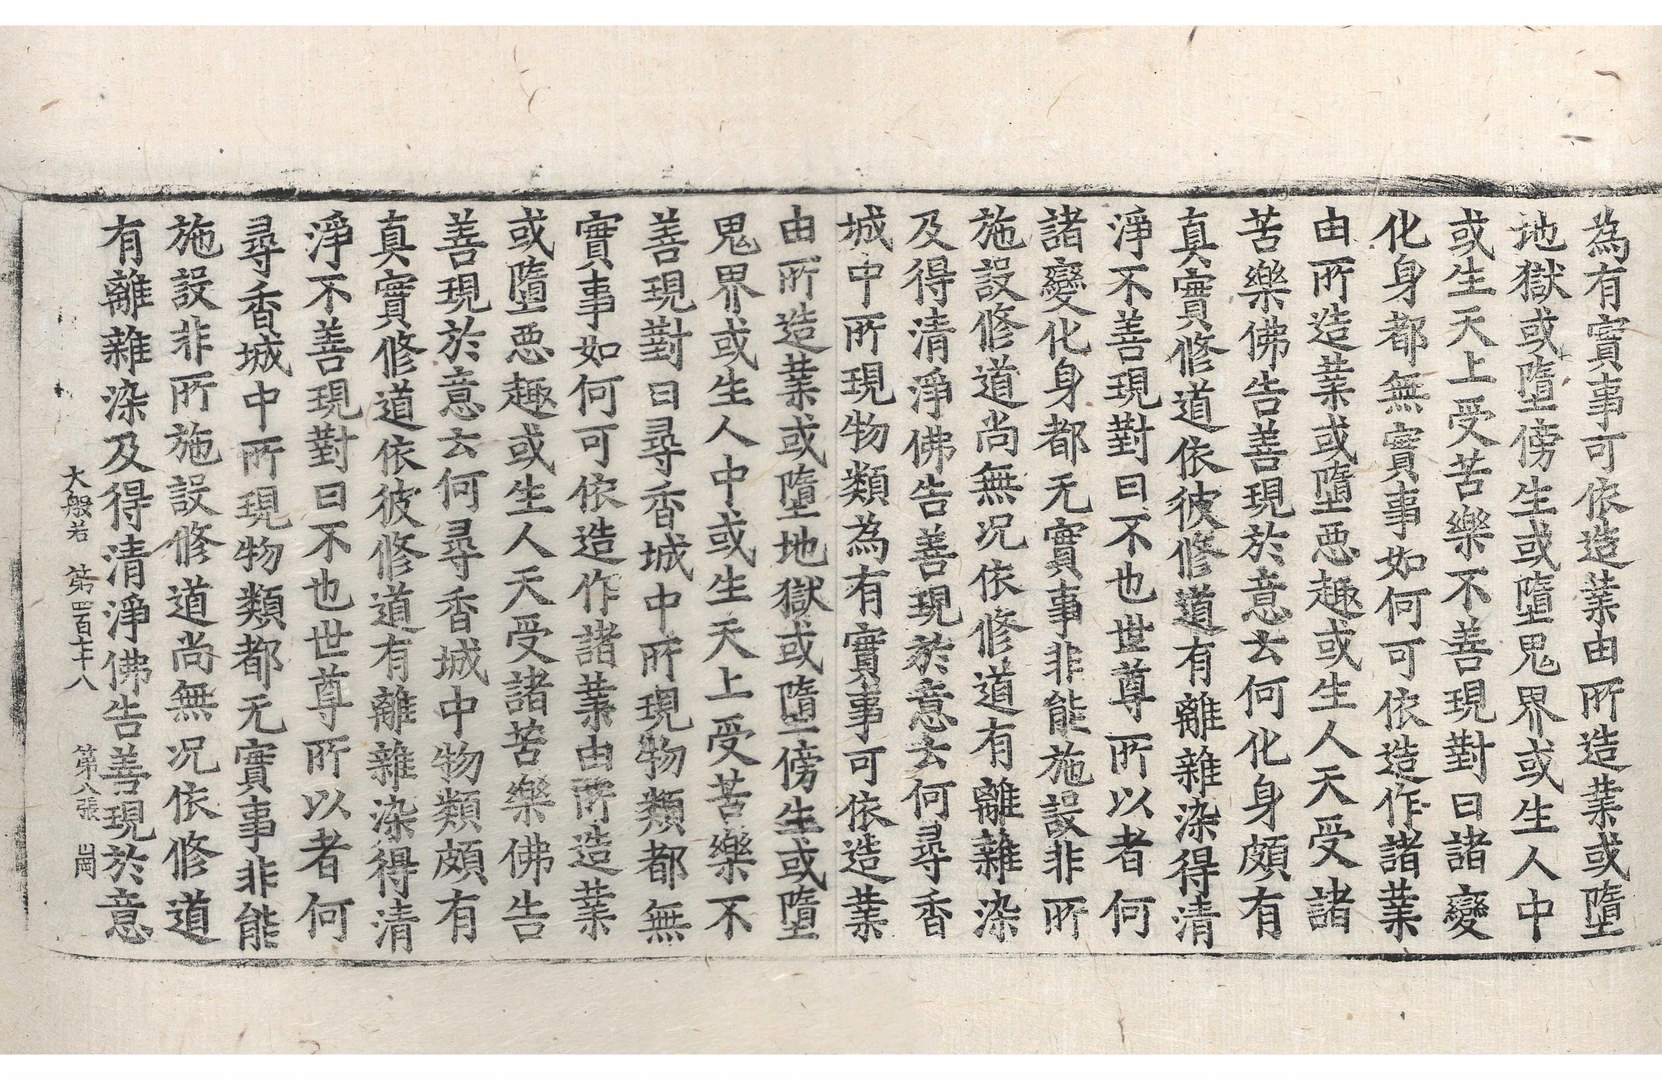 為有實事可依造業由所造業或墮
地獄或墮傍生或墮鬼界或生人中
或生天上受苦樂不善現對曰諸變
化身都無實事如何可依造作諸業
由所造業或墮惡趣或生人天受諸
苦樂佛告善現於意云何化身頗有
真實修道依彼修道有離雜染得清
淨不善現對曰不也世尊所以者何
諸變化身都无實事非能施設非所
施設修道尚無况依修道有離雜染
及得清淨佛告善現於意云何尋香
城中所現物類為有實事可依造業
由所造業或墮地獄或墮傍生或墮
鬼界或生人中或生天上受苦樂不
善現對曰尋香城中所現物類都無
實事如何可依造作諸業由所造業
或墮惡趣或生人天受諸苦樂佛告
善現於意云何尋香城中物類頗有
真實修道依彼修道有離雜染得清
淨不善現對曰不也世尊所以者何
尋香城中所現物類都无實事非能
施設非所施設修道尚無况依修道
有離雜染及得清淨佛告善現於意
大般若 第四百七十八 第八張 崗